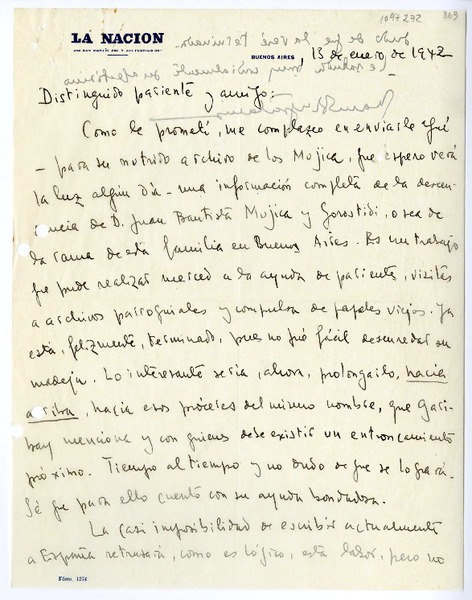 1097272
863
LA NACION
BUENOS AIRES, 13 de enero de 1942
duda de que la veré terminada.
Le saluda muy cordialmente su afectísimo
Distinguido pariente y amigo:
Como le prometí, me complazco en enviarle aquí
– para su nutrido archivo de los Mujica, que espero verá
la luz algún día – una información completa de la descen-
dencia de D. Juan Bautista Mujica y Gorostidi, o sea de
la rama de esta familia en Buenos Aires. Es un trabajo
que pude realizar merced a la ayuda de parientes, visitas
a archivos parroquiales y compulsa de papeles viejos. Ya
está, felizmente, terminado, pues no fué fácil desenredar su
madeja. Lo interesante sería, ahora, prolongarlo, hacia
arriba, hacia esos próceres del mismo nombre, que Gari-
bay menciona y con quienes debe existir un entroncamiento
próximo. Tiempo al tiempo y no dudo de que se logrará.
Sé que para ello cuento con su ayuda bondadosa.
La casi imposibilidad de escribir actualmente
a España retrasará, como es lógico, esta labor, pero no
Fórm. 1254